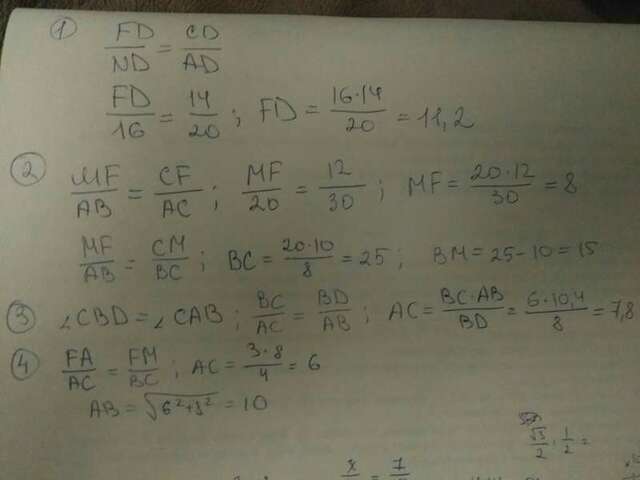 ① FD/ND = CD/AD
FD/16 = 14/20 ; FD = 16·14/20 = 11,2
② MF/AB = CF/AC ; MF/20 = 12/30 ; MF = 20·12/30 = 8
MF/AB = CM/BC ; BC = 20·10/8 = 25 ; BM = 25-10 = 15
③ ∠CBD = ∠CAB ; BC/AC = BD/AB ; AC = BC·AB/BD = 6·10,4/8 = 7,8
④ FA/AC = FM/BC ; AC = 3·8/4 = 6
AB = √6²+8² = 10
√3/2 : 1/2 =